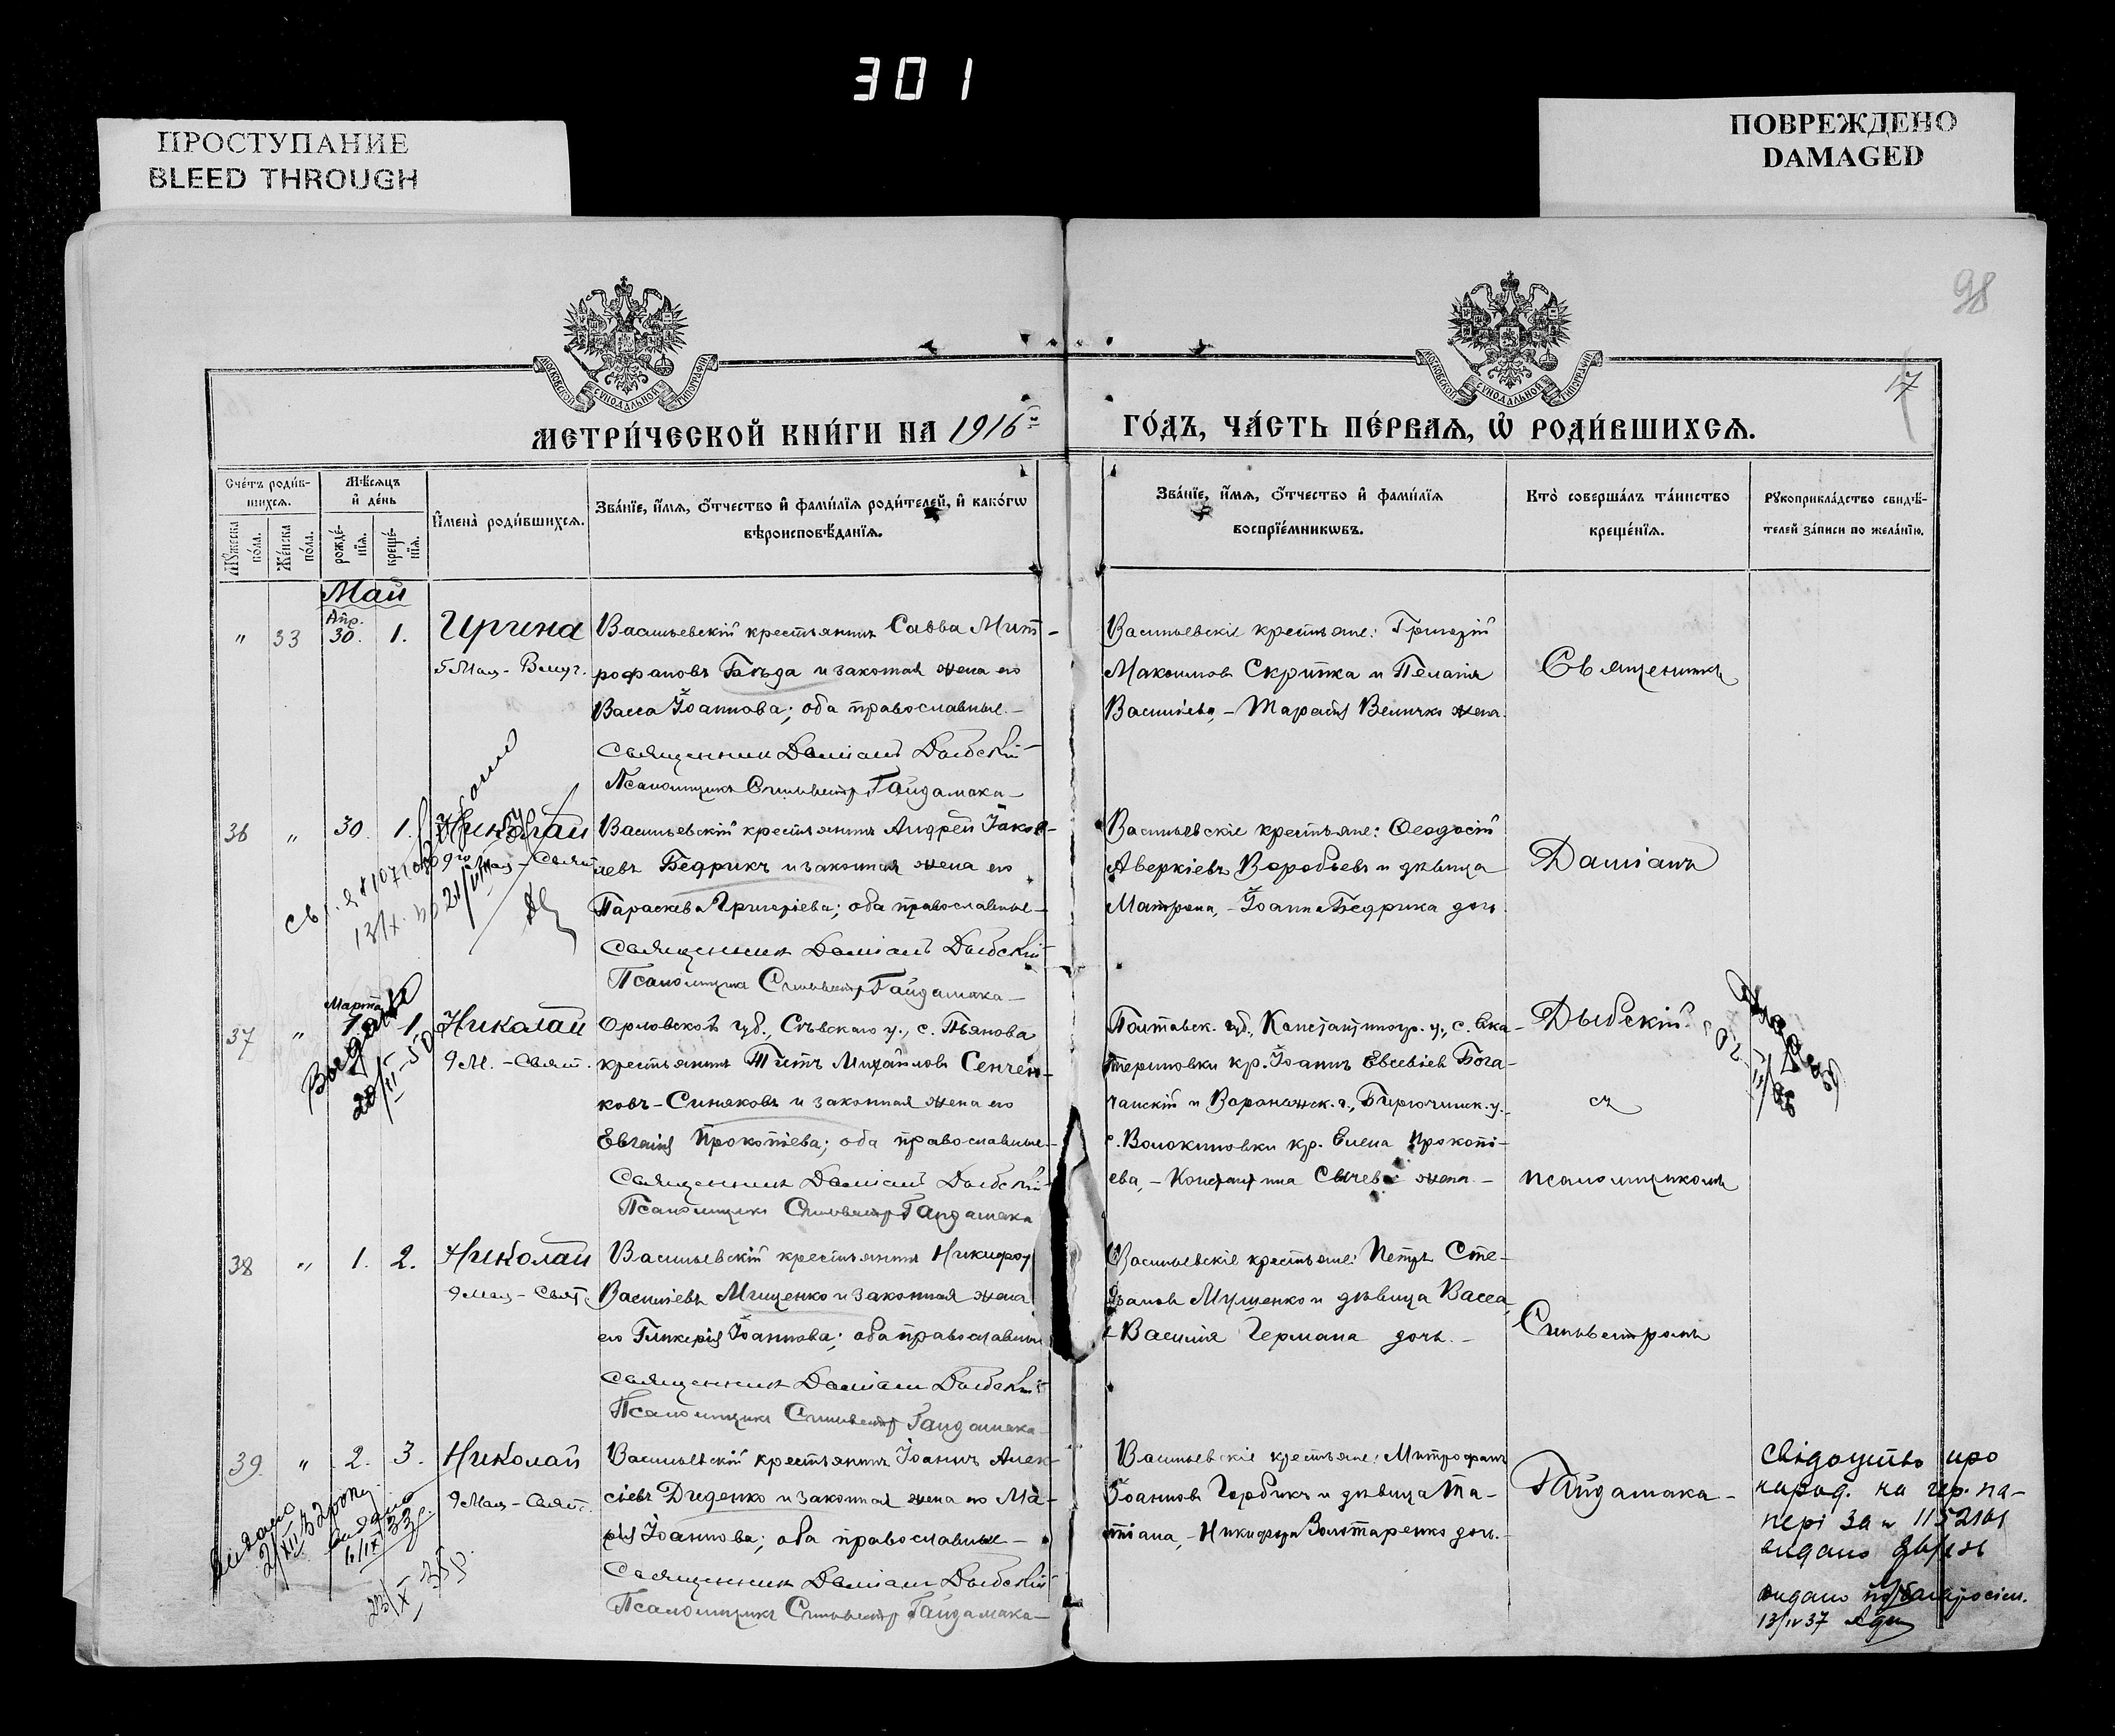 301
ПРОСТУПАНИЕ
BLEED THROUGH
ПОВРЕЖДЕНО
DAMAGED
98
17
МОСКОВСКОЙ СѴНОДАЛЬНОЙ ТИПОГРАФІИ
МОСКОВСКОЙ СѴНОДАЛЬНОЙ ТИПОГРАФІИ
МЕТРИ́ЧЕСКОЙ КНИ́ГИ НА 1916 й
ГО́ДЪ, ЧА́СТЬ ПЕ́РВАѦ, Ѡ҆ РОДИ́ВШИХСѦ.
Сче́тъ роди́в-
шихсѧ.
Мꙋ́жеска по́ла.
Же́нска по́ла.
Мѣ́сѧцъ
и҆ де́нь
рожде́-
нїѧ.
креще́-
нїѧ.
И҆мена̀ роди́вшихсѧ.
Зва́нїе, и҆́мѧ, ѻ҆́тчество и҆ фами́лїѧ роди́телей, и҆ како́гѡ
вѣроисповѣ́данїѧ.
Зва́нїе, и҆́мѧ, ѻ҆́тчество и҆ фами́лїѧ
воспрїе́мникѡвъ.
Кто̀ соверша́лъ та́инство
креще́нїѧ.
Рꙋкоприкла́дство свидѣ́-
телей за́писи по жела́нїю.
Май
" 33 Апр. 30. 1. Ирина
5 Мая -
Васильевскій крестьянинъ Савва Мит-
рофановъ Бѣлъда и законная жена его
Васса Іоаннова; оба православные.-
Священникъ Даміанъ Дыбскій
Псаломщикъ Сильвестръ Гайдамака-
Васильевскіе крестьяне: Григорій
Максимовъ Скрипка и Пелагія
Васильева, - Тарасія Величко жена.
Священникъ
36 " 30. 1. Николай
9го Мая - Свят.
Васильевскій крестьянинъ Андрей Іаков-
левъ Бедрикъ и законная жена его
Параскева Григоріева; оба православные-
Священникъ Даміанъ Дыбскій
Псаломщикъ Сильвестръ Гайдамака-
Васильевскіе крестьяне: Ѳеодосій
Аверкіевъ Воробьевъ и дѣвица
Матрона, - Іоанна Бедрика дочь.
Даміанъ
37 " Марта 1. Николай
9 М. - Свят.
Выдана
20/II-50
Орловской губ., Сѣвскаго у., с. Пьянова
крестьянинъ Титъ Михайловъ Сенчен-
ковъ-Синяковъ и законная жена его
Евгенія Прокопіева; оба православные-
Священникъ Даміанъ Дыбскій
Псаломщикъ Сильвестръ Гайдамака
Полтавск. губ., Константиногр. у., с. Ека-
териновки кр. Іоаннъ Евсевіевъ Бога-
чанскій и Воронежск. г., Бирючинск. у.
с. Волоконовки кр. Елена Прокопі-
ева, - Константина Сычева жена -
Дыбскій
съ
псаломщикомъ
38 " 1. 2. Николай
9 Мая - Свят.
Васильевскій крестьянинъ Никифоръ
Васильевъ Мищенко и законная жена
его Гликерія Іоаннова; оба православные
Священникъ Даміанъ Дыбскій
Псаломщикъ Сильвестръ Гайдамака
Васильевскіе крестьяне: Петръ Сте-
фановъ Мищенко и дѣвица Васса,
- Василія Германа дочь. -
Сильвестромъ
39. " 2. 3. Николай
9 Мая - Свят.
Васильевскій крестьянинъ Іоаннъ Алек-
сіевъ Диденко и законная жена его Ма-
рія Іоаннова; оба православные -
Священникъ Даміанъ Дыбскій
Псаломщикъ Сильвестръ Гайдамака-
Васильевскіе крестьяне: Митрофанъ
Іоанновъ Горбикъ и дѣвица Та-
тіана, - Никифора Золотаренко дочь.-
Гайдамака-
Свідоцтво про
народ. на гер. па-
пері за №
видано
видано
13/IV 37